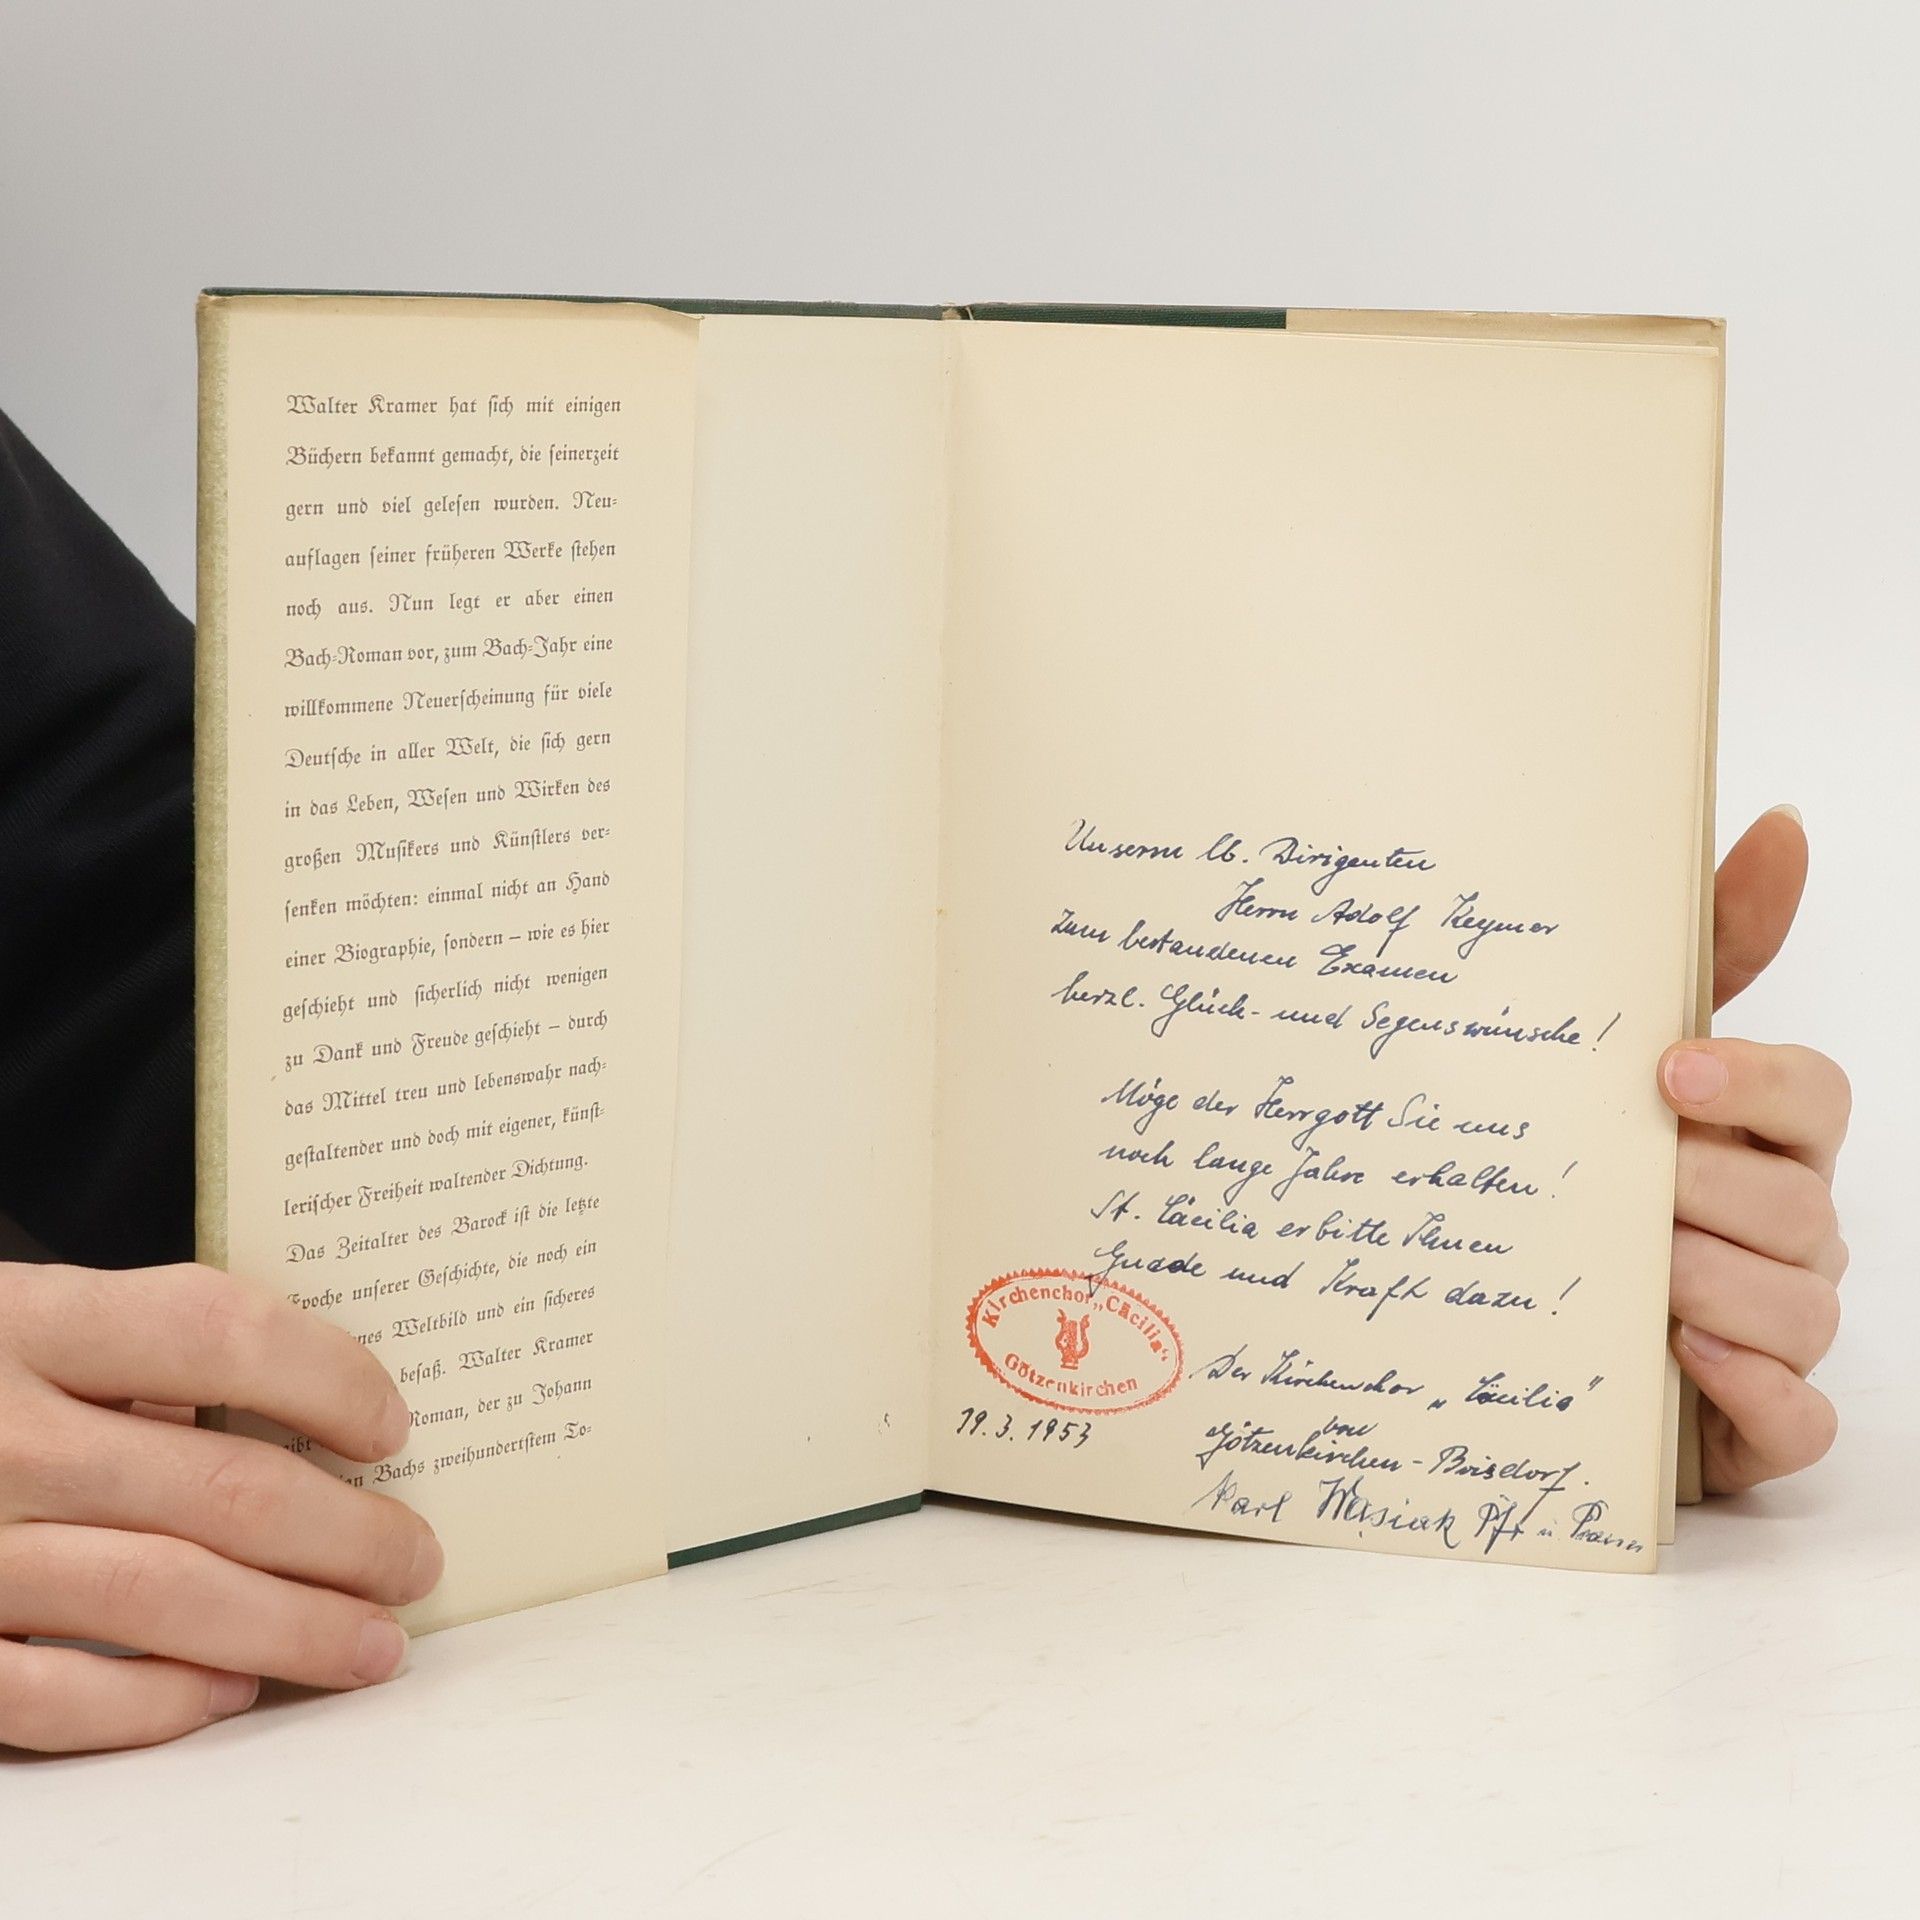 Walter Kramer hat sich mit einigen
Büchern bekannt gemacht, die seinerzeit
gern und viel gelesen wurden. Neu-
auflagen seiner früheren Werke stehen
noch aus. Nun legt er aber einen
Bach-Roman vor, zum Bach-Jahr eine
willkommene Neuerscheinung für viele
Deutsche in aller Welt, die sich gern
in das Leben, Wesen und Wirken des
großen Musikers und Künstlers ver-
senken möchten: einmal nicht an Hand
einer Biographie, sondern – wie es hier
geschieht und sicherlich nicht wenigen
zu Dank und Freude geschieht – durch
das Mittel treu und lebenswahr nach-
gestaltender und doch mit eigener, künst-
lerischer Freiheit waltender Dichtung.
Das Zeitalter des Barock ist die letzte
Epoche unserer Geschichte, die noch ein
Weltbild und ein sicheres
besaß. Walter Kramer
Roman, der zu Johann
Bachs zweihundertstem To-
Unserm lb. Dirigenten
Herrn Adolf Keymer
zum bestandenen Examen
herzl. Glück- und Segenswünsche!
Möge der Herrgott Sie uns
noch lange Jahre erhalten!
St. Cäcilia erbitte Ihnen
Gnade und Kraft dazu!
Kirchenchor „Cäcilia“
Götzenkirchen
Der Kirchenchor „Cäcilia"
von
Götzenkirchen - Boisdorf.
19.3.1953
Karl Wasiak Pfr u.